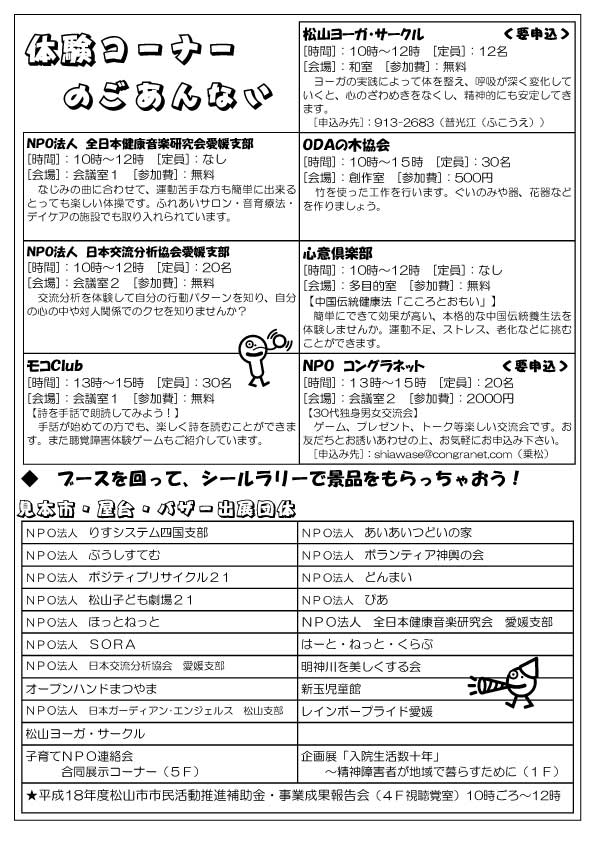 体験コーナー
のごあんない
松山ヨーガ・サークル <要申込>
[時間]：10時～12時 [定員]：12名
[会場]：和室 [参加費]：無料
ヨーガの実践によって体を整え、呼吸が深く変化して
いくと、心のざわめきをなくし、精神的にも安定してき
ます。
[申込み先]：913-2683（普光江（ふこうえ））
NPO法人 全日本健康音楽研究会愛媛支部
[時間]：10時～12時 [定員]：なし
[会場]：会議室１ [参加費]：無料
なじみの曲に合わせて、運動苦手な方も簡単に出来る
とっても楽しい体操です。ふれあいサロン・音育療法・
デイケアの施設でも取り入れられています。
ODAの木協会
[時間]：10時～15時 [定員]：30名
[会場]：創作室 [参加費]：500円
竹を使った工作を行います。ぐいのみや器、花器など
を作りましょう。
NPO法人 日本交流分析協会愛媛支部
[時間]：10時～12時 [定員]：20名
[会場]：会議室２ [参加費]：無料
交流分析を体験して自分の行動パターンを知り、自分
の心の中や対人関係でのクセを知りませんか？
心意倶楽部
[時間]：10時～12時 [定員]：なし
[会場]：多目的室 [参加費]：無料
【中国伝統健康法「こころとおもい」】
簡単にできて効果が高い、本格的な中国伝統養生法を
体験しませんか。運動不足、ストレス、老化などに挑む
ことができます。
モコClub
[時間]：13時～15時 [定員]：30名
[会場]：会議室１ [参加費]：無料
【詩を手話で朗読してみよう！】
手話が始めての方でも、楽しく詩を読むことができま
す。また聴覚障害体験ゲームもご紹介しています。
NPO コングラネット <要申込>
[時間]：１３時～15時 [定員]：20名
[会場]：会議室２ [参加費]：2000円
【30代独身男女交流会】
ゲーム、プレゼント、トーク等楽しい交流会です。お
友だちとお誘いあわせの上、お気軽にお申込み下さい。
[申込み先]：shiawase@congranet.com（乗松）
◆ ブースを回って、シールラリーで景品をもらっちゃおう！
見本市・屋台・バザー出展団体
ＮＰＯ法人 りすシステム四国支部
ＮＰＯ法人 あいあいつどいの家
ＮＰＯ法人 ぶうしすてむ
ＮＰＯ法人 ボランティア神輿の会
ＮＰＯ法人 ポジティブリサイクル２１
ＮＰＯ法人 どんまい
ＮＰＯ法人 松山子ども劇場２１
ＮＰＯ法人 ぴあ
ＮＰＯ法人 ほっとねっと
ＮＰＯ法人 全日本健康音楽研究会 愛媛支部
ＮＰＯ法人 ＳＯＲＡ
はーと・ねっと・くらぶ
ＮＰＯ法人 日本交流分析協会 愛媛支部
明神川を美しくする会
オープンハンドまつやま
新玉児童館
ＮＰＯ法人 日本ガーディアン・エンジェルス 松山支部
レインボープライド愛媛
松山ヨーガ・サークル
子育てＮＰＯ連絡会
合同展示コーナー（５Ｆ）
企画展「入院生活数十年」
～精神障害者が地域で暮らすために（１Ｆ）
★平成18年度松山市市民活動推進補助金・事業成果報告会（４Ｆ視聴覚室）10時ごろ～12時